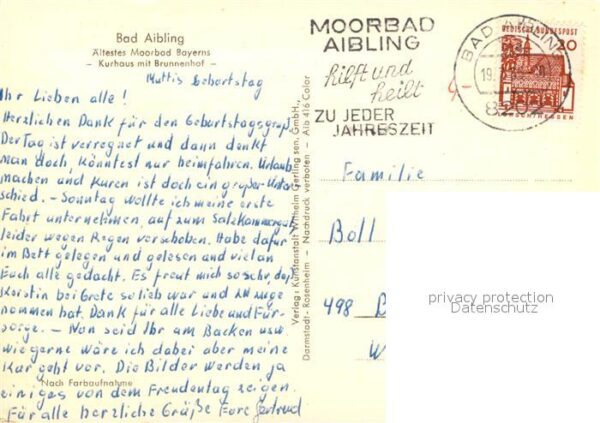 Bad Aibling
Ältestes Moorbad Bayerns
– Kurhaus mit Brunnenhof –
Muttis Geburtstag
Ihr Lieben alle!
Herzlichen Dank für den Geburtstagsgruß
Der Tag ist verregnet und dann denkt
man doch, könntest nur heimfahren. Urlaub
machen und Kuren ist doch ein großer Unter
schied. – Sonntag wollte ich meine erste
Fahrt unternehmen, auf zum Salzkammergut,
leider wegen Regen verschoben. Habe dafür
im Bett gelegen und gelesen und viel an
Euch alle gedacht. Es freut mich so sehr, daß
Kerstin bei Grete so lieb war und zu
nommen hat. Dank für alle Liebe und Für-
sorge. – Nun seid Ihr am Backen usw
wie gerne wäre ich dabei aber meine
Kur geht vor. Die Bilder werden ja
Nach Farbaufnahme
einiges von dem Freudentag zeigen.
Für alle herzliche Grüße Eure Gertrud
Verlag: Kunstanstalt Wilhelm Gerling sen. GmbH.,
Darmstadt-Rosenheim Nachdruck verboten – Alb 416 Color
MOORBAD
AIBLING
hilft und
heilt
ZU JEDER
JAHRESZEIT
BAD AIBLING
19.
DEUTSCHE BUNDESPOST
20
Familie
Boll
498
privacy protection
Datenschutz